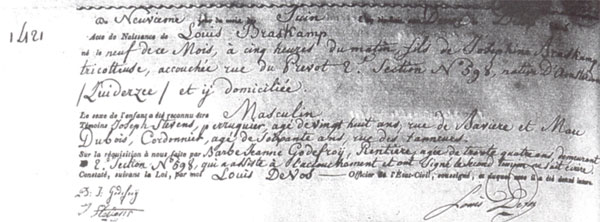 1421
Du Neuvieme jour du mois de Juin
Acte de Naissance de Louis Braskamp
né le neuf de ce Mois, à cinq heures du matin, fils de Josephine Braskamp
tricotteuse, accouchée rue du Prevot 2e Section N° 598, native D'
/Zuiderzee/ et y domiciliée
Le sexe de l'enfant a été reconnu être Masculin
Témoins Joseph Stevens, perruquier, agé de vingt huit ans, rue de Baviere et
Dubois, Cordonnier, agé de soixante ans rue des Tanneurs
Sur la réquisition à nous faite par Barbe Jeanne Godefroy, Rentière, agée de trente quatre ans demeurant
2e Section N° 598, qui a assisté à l'accouchement et ont Signé
Constaté, suivant la Loi, par moi Louis DeVos Officier de l'État-Civil, soussigné,
B. J. Godefroy
Louis Devos